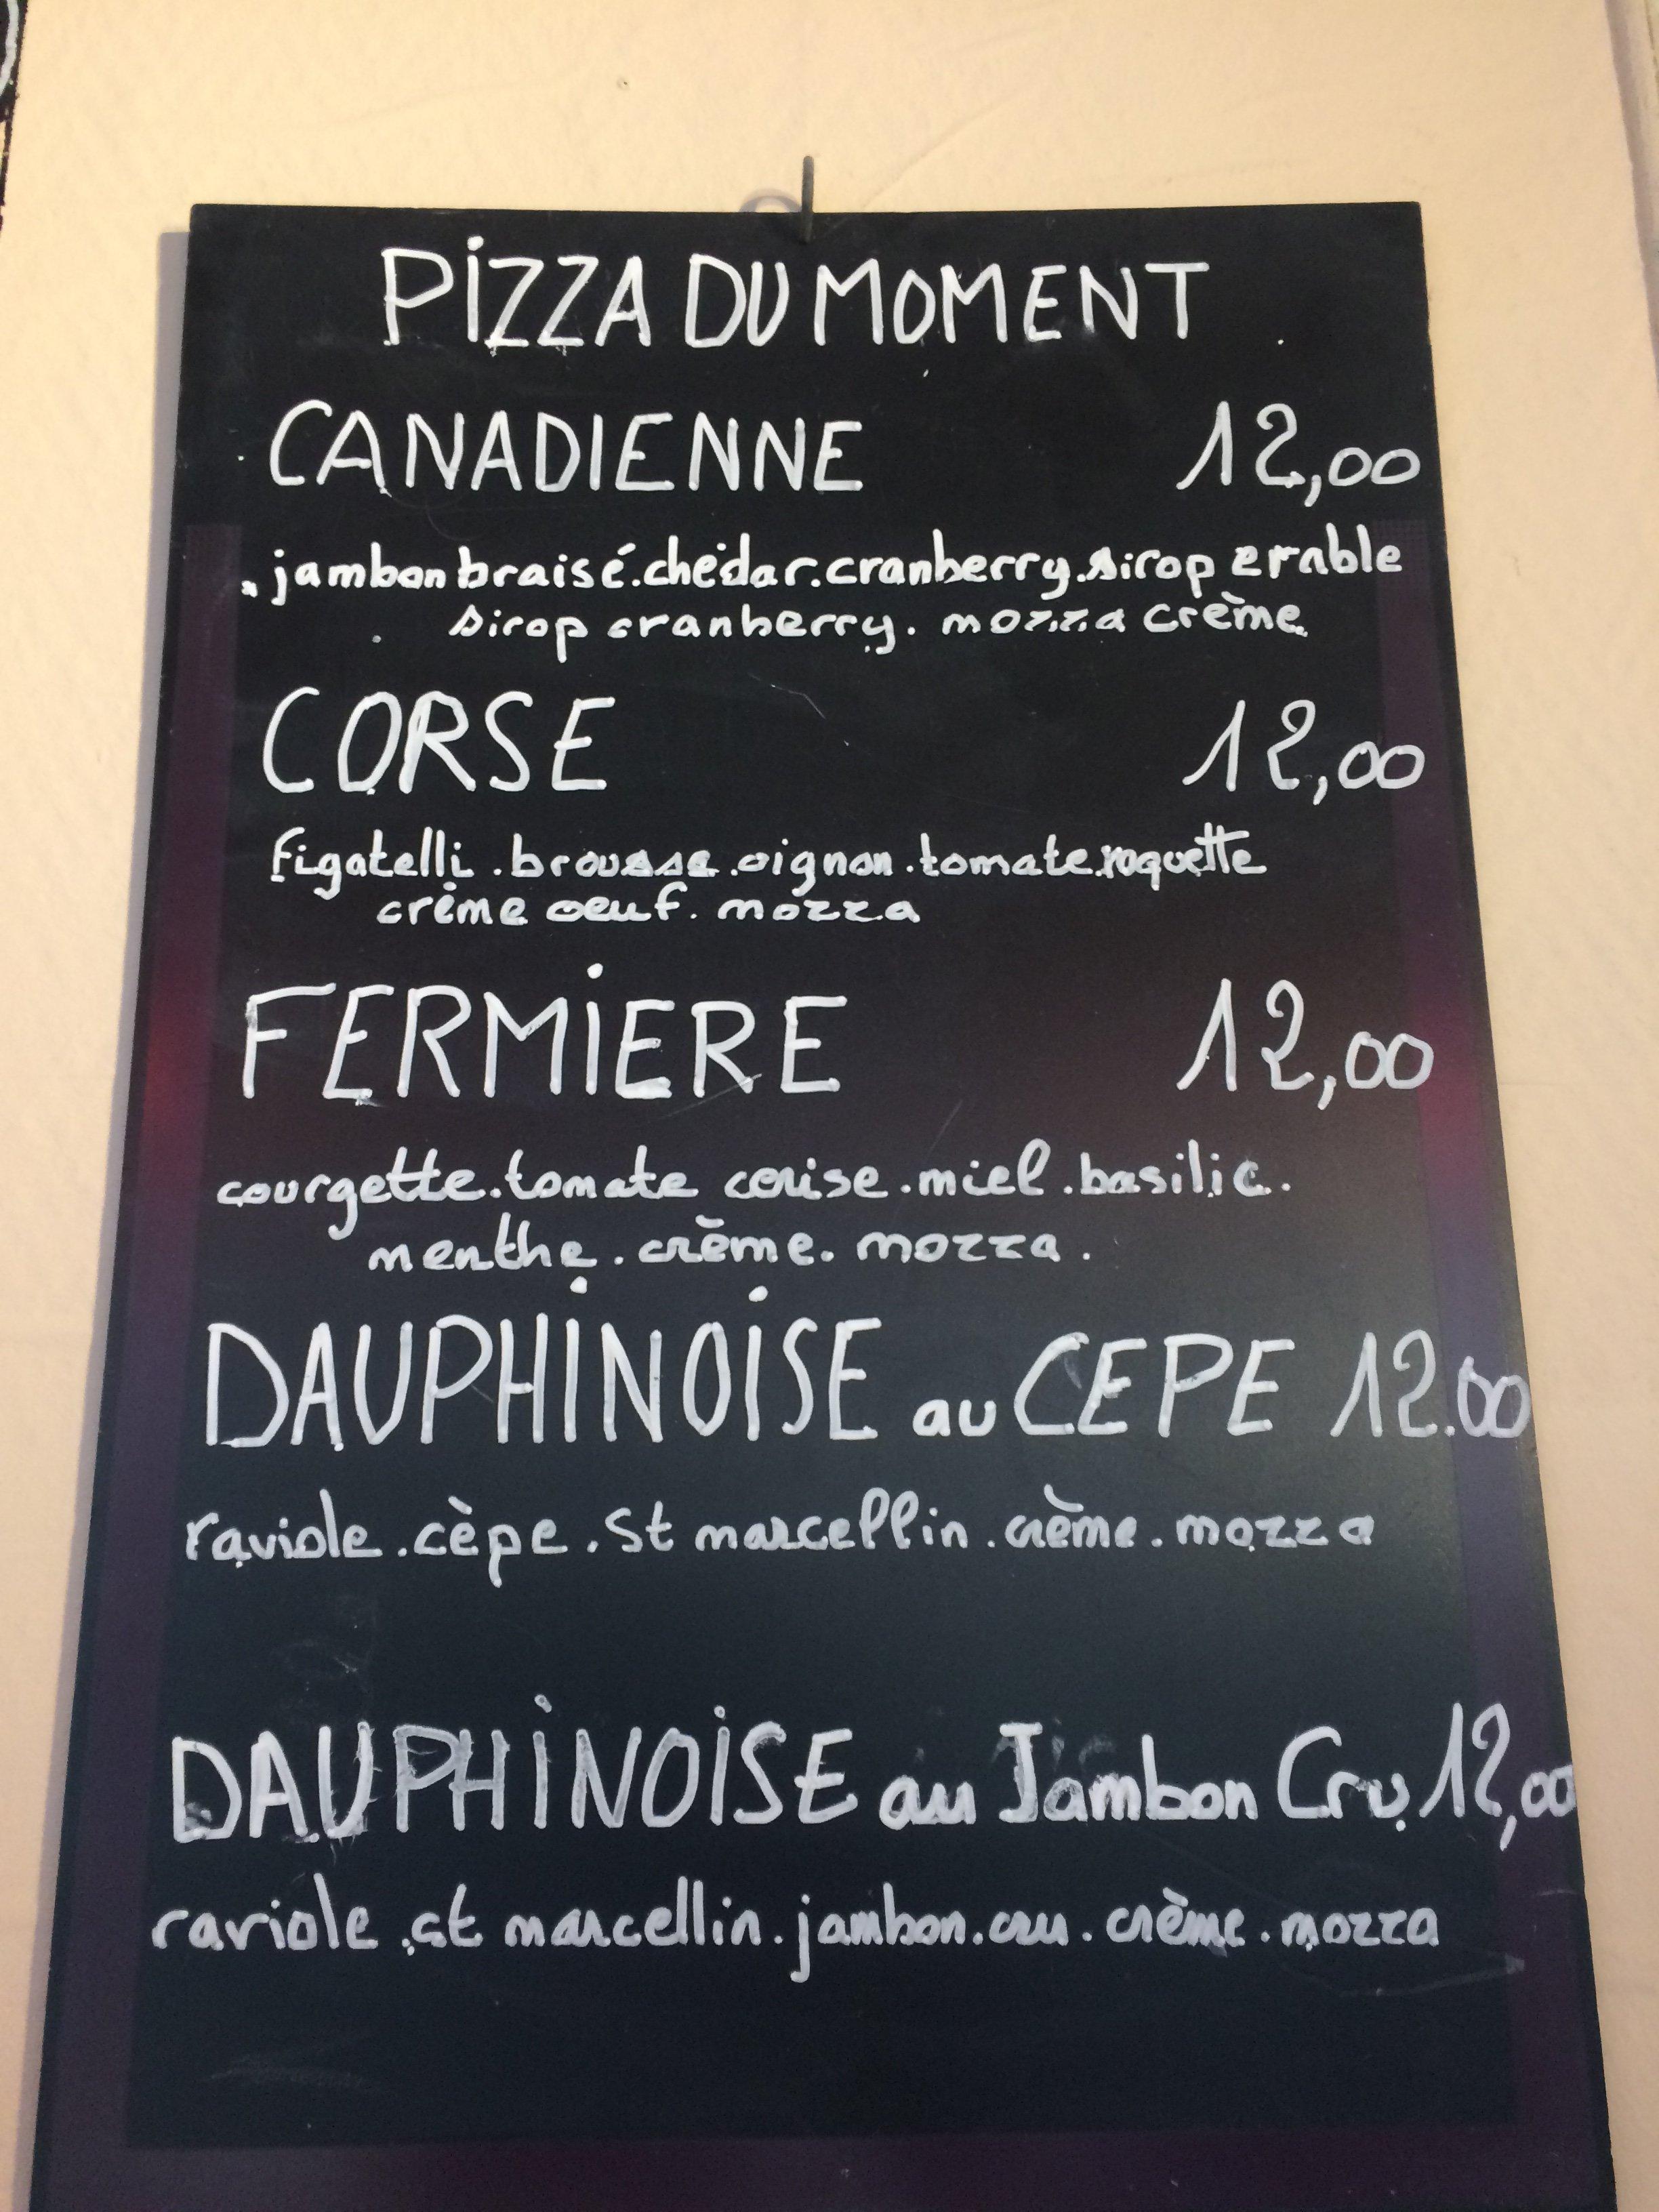 PIZZA DU MOMENT
CANADIENNE 12,00
jambon braisé.chedar.cranberry.sirop erable
sirop cranberry. mozza crème
CORSE 12,00
figatelli.brousse.oignon.tomate.roquette
crème oeuf. mozza
FERMIERE 12,00
courgette.tomate cerise.miel.basilic.
menthe.crème.mozza.
DAUPHINOISE au CEPE 12.00
raviole.cèpe.St marcellin.crème.mozza
DAUPHINOISE au Jambon Cru 12,00
raviole.st marcellin.jambon.cru.crème.mozza